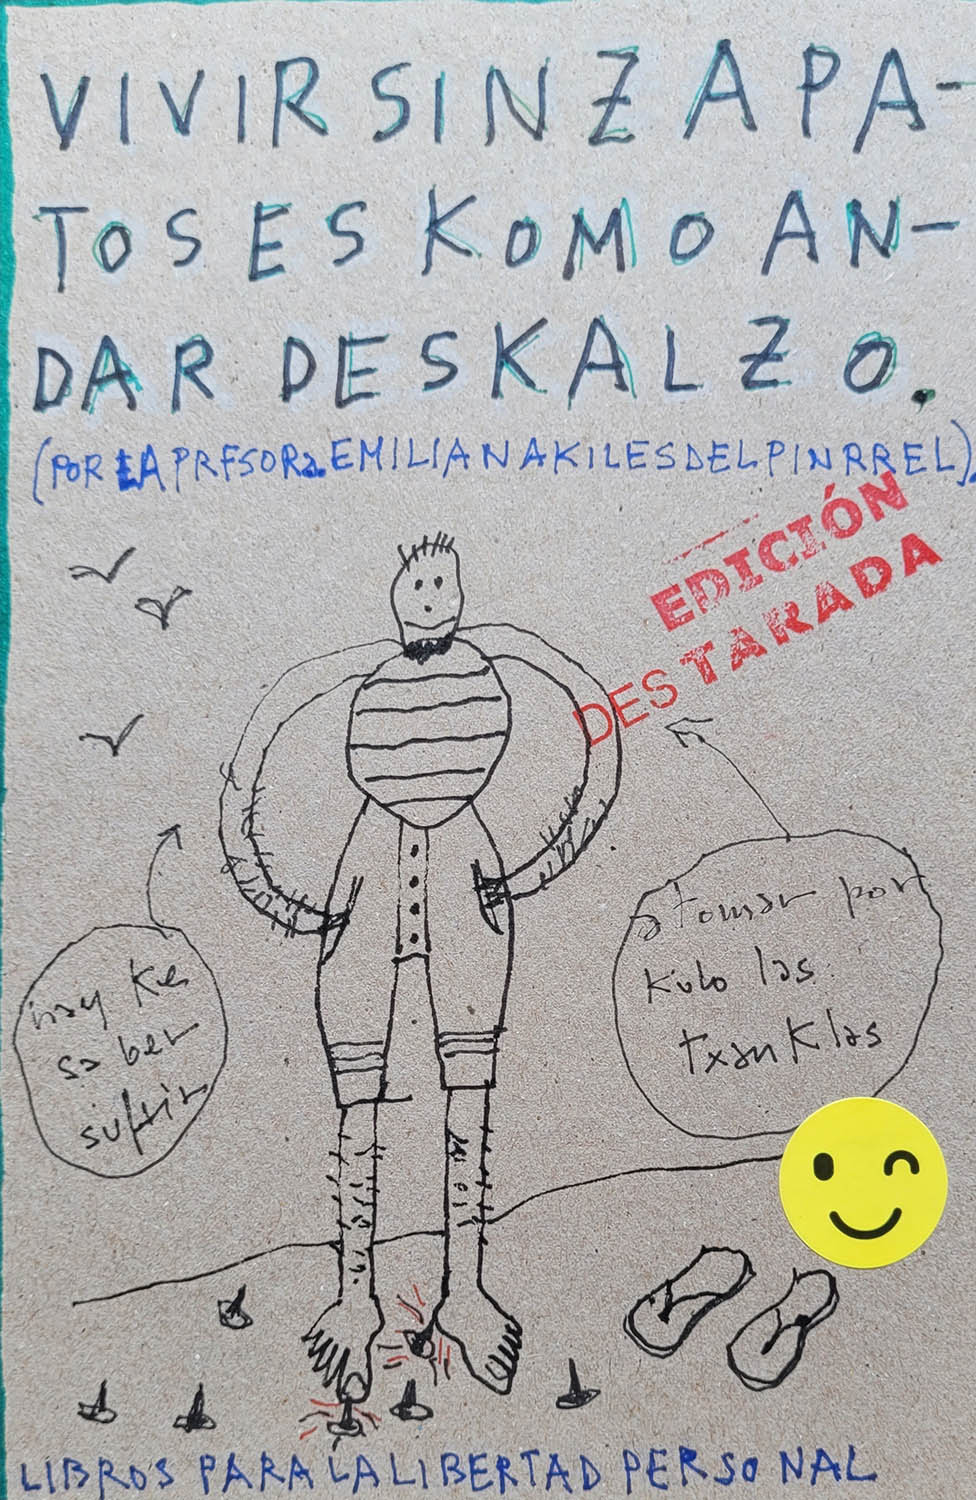 VIVIR SIN ZAPA-
TOS ES KOMO AN-
DAR DESKALZO.
(POR LA PRFSORA. EMILIANA KILES DEL PINRREL).
EDICIÓN
DESTARADA
hay ke
saber
sufrir
a tomar por
kulo las
txanklas
LIBROS PARA LA LIBERTAD PERSONAL